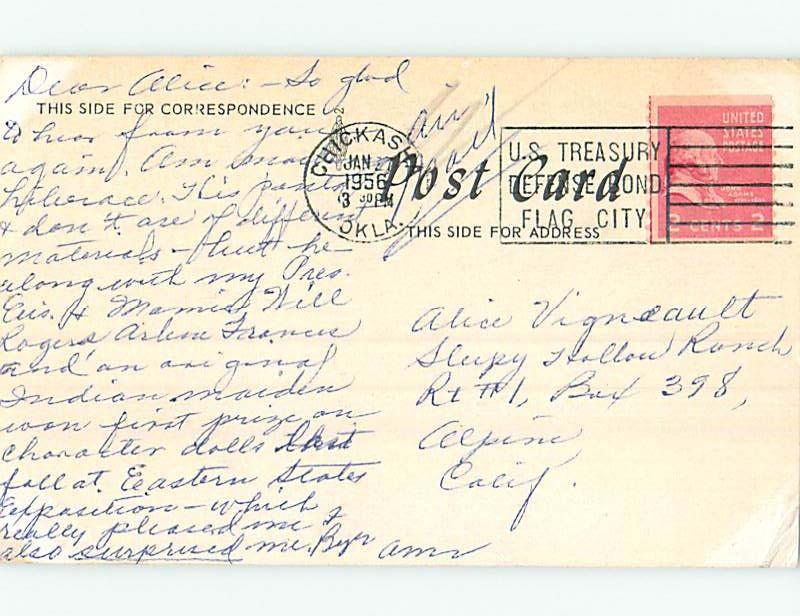 Dear Alice: - So glad
THIS SIDE FOR CORRESPONDENCE
to hear from you
again. Am
Liberace. His pants
& don't are of different
materials - but he
along with my Pres.
Eis. & Mamie, Will
Rogers Arlene Francis
and an original
Indian maiden
won first prize on
character dolls last
fall at Eastern States
Exposition - which
really pleased me &
also surprised me.
Air
Mail
CHICKASHA
JAN
1956
3 30 PM
OKLA.
Post Card
THIS SIDE FOR ADDRESS
U.S. TREASURY
DEFENSE BOND
FLAG CITY
UNITED
STATES
POSTAGE
JOHN
ADAMS
2 CENTS 2
Alice Vigneault
Sleepy Hollow Ranch
Rt #1, Box 398,
Alpine
Calif.